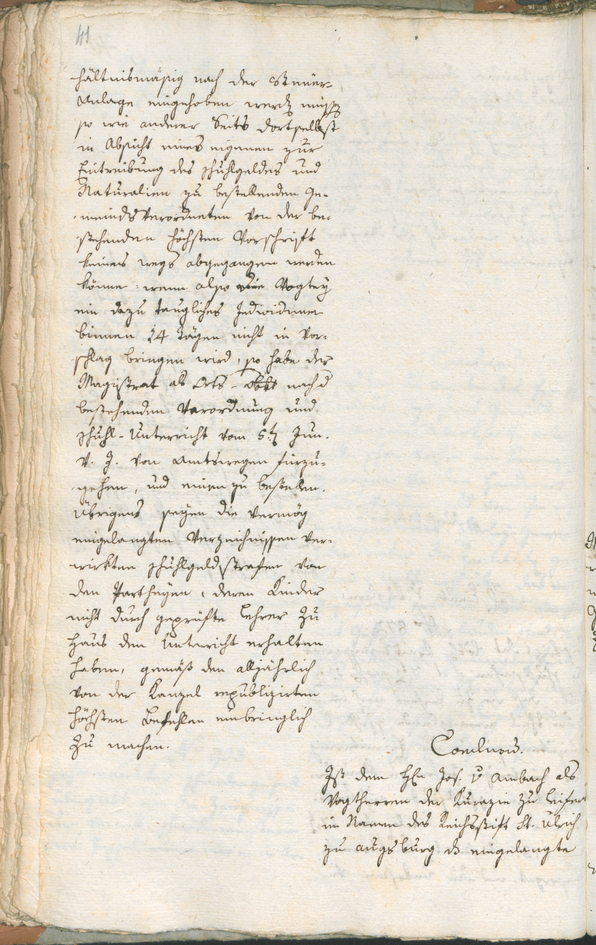 41
hältnismäßig nach der Steuer-
Anlage eingehoben werdn müsse
so wie anderer Seits dortselbst
in Absicht eines eigenen zur
Eintreibung des Schuhlgeldes und
Naturalien zu bestellenden Ge-
meinds Verordneten von der be-
stehenden höchsten Vorschrift
keines wegs abgegangen werden
könne; wenn also die Vogtey
ein dazu taugliches Individuum
binnen 14 Tägen nicht in Vor-
schlag bringen wird, so habe der
Magistrat als Orts-Obkt nach d
bestehenden Verordnung und
Schuhl-Unterricht vom 5t Jun.
v. J. von Amtswegen fürzu-
gehen, und einen zu bestellen.
Übrigens seyen die vermög
eingelangten Verzeichnissen ver-
wirkten Schuhlgeldstrafen von
den Partheyen, deren Kinder
nicht durch geprüfte Lehrer zu
Haus den Unterricht erhalten
haben, gemäß den alljährlich
von der Kanzel republizirten
höchsten Befehlen einbringlich
zu machen.
Conclusum.
Ist dem Hn Jos. v Ambach als
Vogtherren der Kurazie zu Leifers
im Namen des Reichsstift St. Ulrich
zu Augsburg ds eingelangte